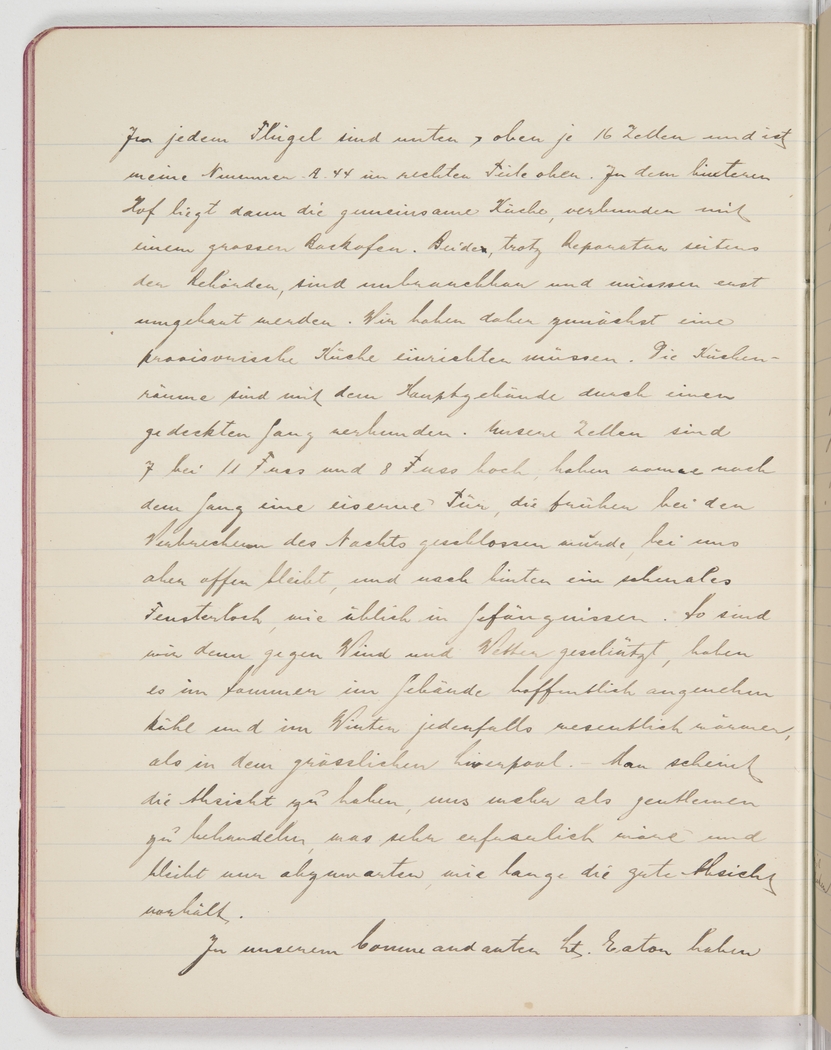 In jedem Flügel sind unten & oben je 16 Zellen und ist
meine Nummer A. 44 im rechten Teile oben. In dem hinteren
Hof liegt dann die gemeinsame Küche, verbunden mit
einem grossen Backofen. Beides, trotz Reparatur seitens
der Behörden, sind unbrauchbar und müssen erst
umgebaut werden. Wir haben daher zunächst eine
provisorische Küche einrichten müssen. Die Küchen-
räume sind mit dem Hauptgebäude durch einen
gedeckten Gang verbunden. Unsere Zellen sind
7 bei 11 Fuss und 8 Fuss hoch, haben vorne nach
dem Gang eine eiserne Tür, die früher bei den
Verbrechern des Nachts geschlossen wurde, bei uns
aber offen bleibt, und nach hinten ein schmales
Fensterloch, wie üblich in Gefängnissen. So sind
wir denn gegen Wind und Wetter geschützt, haben
es im Sommer im Gebäude hoffentlich angenehm
kühl und im Winter jedenfalls wesentlich wärmer,
als in dem grässlichen Liverpool. - Man scheint
die Absicht zu haben, uns mehr als gentlemen
zu behandeln, was sehr erfreulich wäre und
bleibt nur abzuwarten, wie lange die gute Absicht
vorhält.
In unserem Commeandanten Lt. Eaton haben